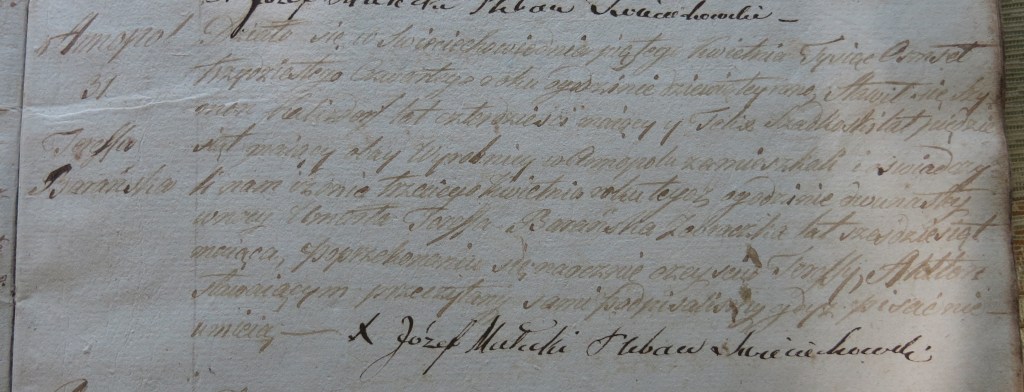 X Józef Małecki Pleban Swieciechowski —
Annopol
31
Teressa
Barańska
Działo się w Swieciechowie dnia piątego Kwietnia Tysiąc Osmset
trzydziestego Czwartego roku o godzinie dziewiątey rano, Stawił się Szy
mon lat czterdzieści maiący y Felix Szadkoski lat piędzie
siąt maiący obay Wyrobnicy w Annopolu zamieszkali i oświadczy
li nam iż dnia trzeciego Kwietnia roku tegoż o godzinie dwunastey
w nocy Umarła Teressa Barańska Żebraczka lat sześdziesiąt
maiąca, Poprzekonaniu się naocznie o zeysciu Teressy, Akt ten
stawaiącym przeczytany sami podpisaliśmy gdyż pisać nie
umieią —
X Józef Małecki Pleban Swieciechowski